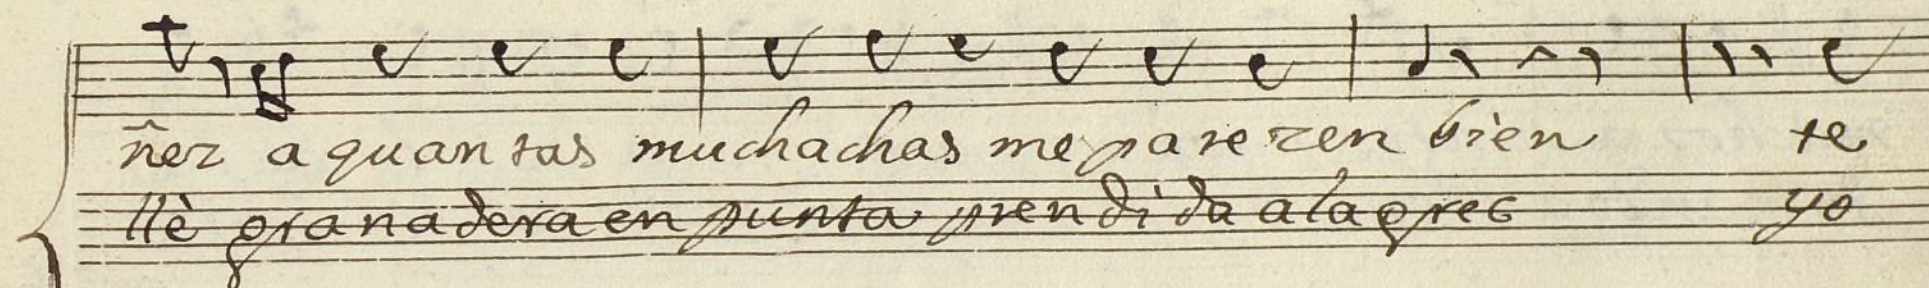 ñer a quantas muchachas me parezen bien te
llè granadera en punta prendida a la gree yo